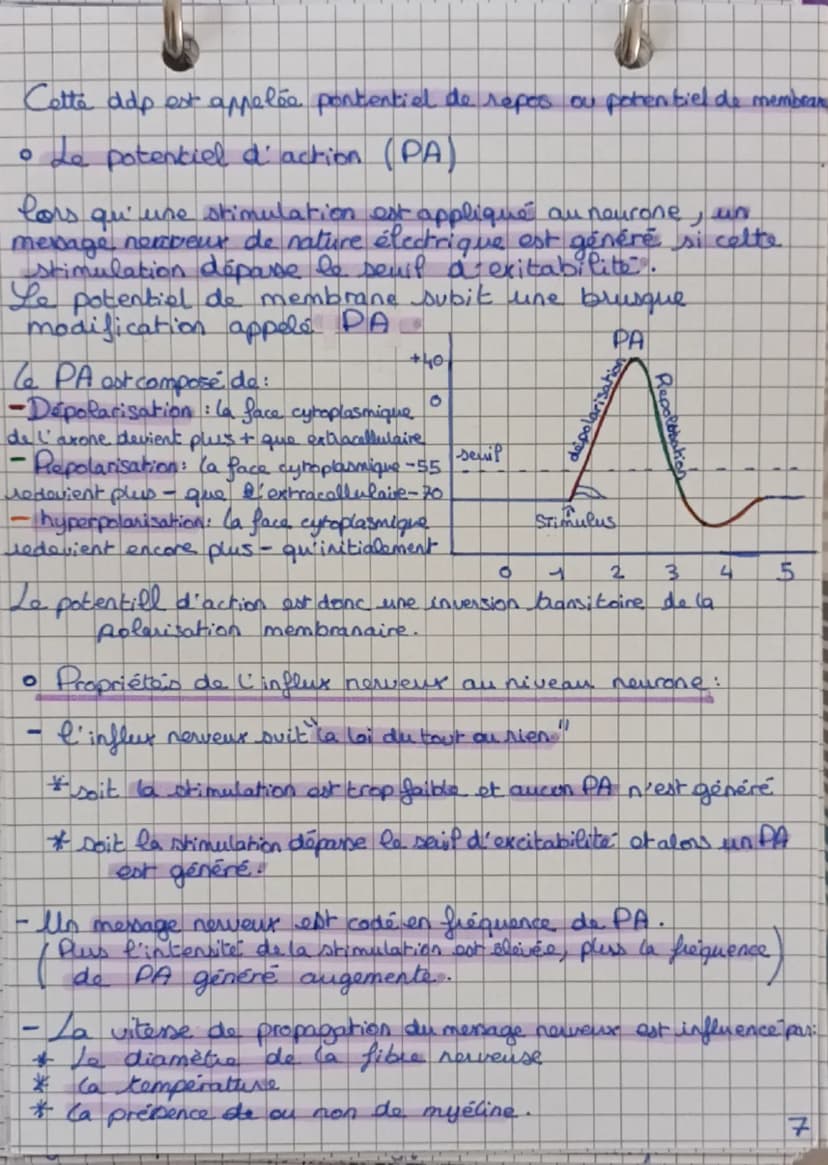 Cette ddp est appelée pontentiel de repos ou potentiel de membran
o Le potentiel d'action (PA)
lors qu'une stimulation est appliqué au neurone, un
message nerveux de nature électrique est généré si cette
stimulation dépasse le seuil d'exitabilité.
Le potentiel de membrane subit une brusque
modification appelé PA
Le PA est composé de :
- Dépolarisation : la face cytoplasmique
de l'axone devient plus + que extracellulaire
- Repolarisation : la face cytoplasmique
redevient plus - que l'extracellulaire
- hyperpolarisation : la face cytoplasmique
redevient encore plus - qu'initialement
PA
+40
0
-55
-70
seuil
dépolarisation
Repolarisation
Stimulus
0 1 2 3 4 5
Le potentiell d'action est donc une inversion transitoire de la
polarisation membranaire.
o Propriétés de l'influx nerveux au niveau neurone :
- l'influx nerveux suit "la loi du tout ou rien"
* soit la stimulation est trop faible et aucun PA n'est généré
* soit la stimulation dépasse le seuil d'excitabilité et alors un PA
est généré.
- Un message nerveux est codé en fréquence de PA.
(Plus l'intensité de la stimulation est élevée, plus la fréquence
de PA généré augemente.)
- La vitesse de propagation du message nerveux est influencé par :
* Le diamètre de la fibre nerveuse
* la température
* la présence de ou non de myéline.
7